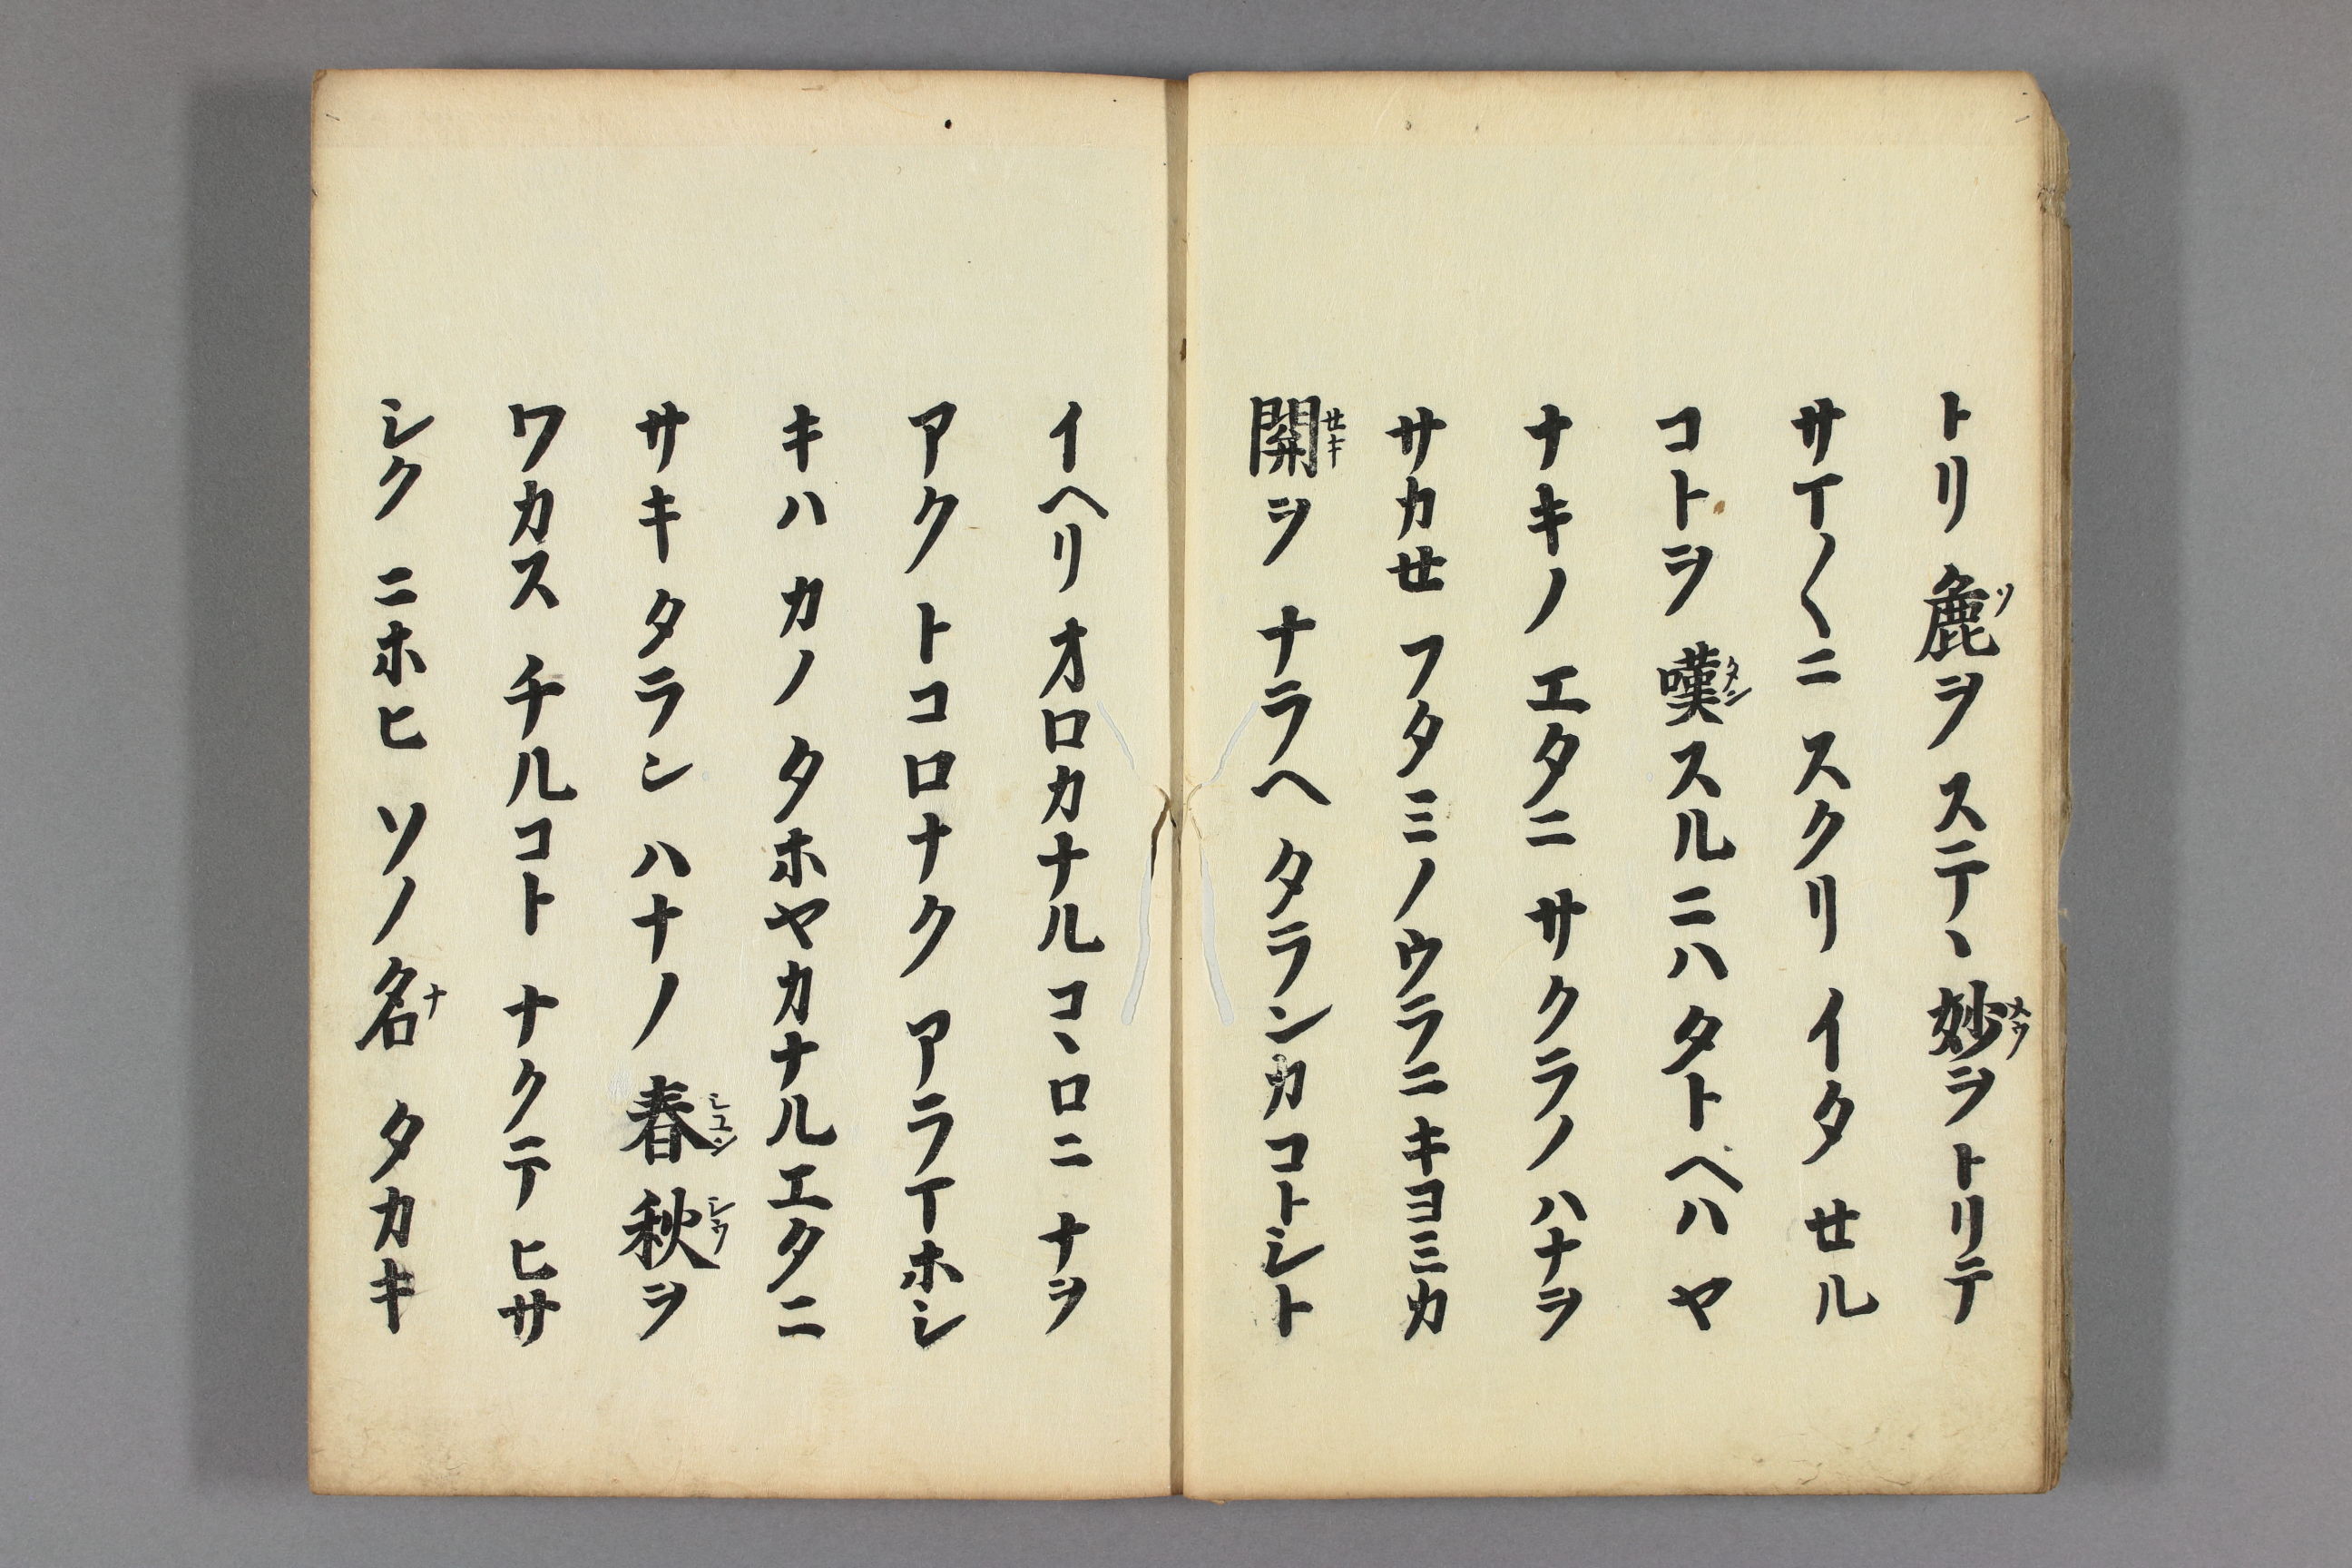 トリ麁ヲステヽ妙ヲトリテ
サイ〳〵ニスクリイタセル
コトヲ嘆スルニハタトヘハヤ
ナキノエタニサクラノハナヲ
サカセフタミノウラニキヨミカ
関ヲナラヘタランカコトシト
イヘリオロカナルコヽロニナヲ
アクトコロナクアライホシ
キハカノタホヤカナルエタニ
サキタラシハナノ春秋ヲ
ワカスチルコトナクテヒサ
シクニホヒソノ名タカキ